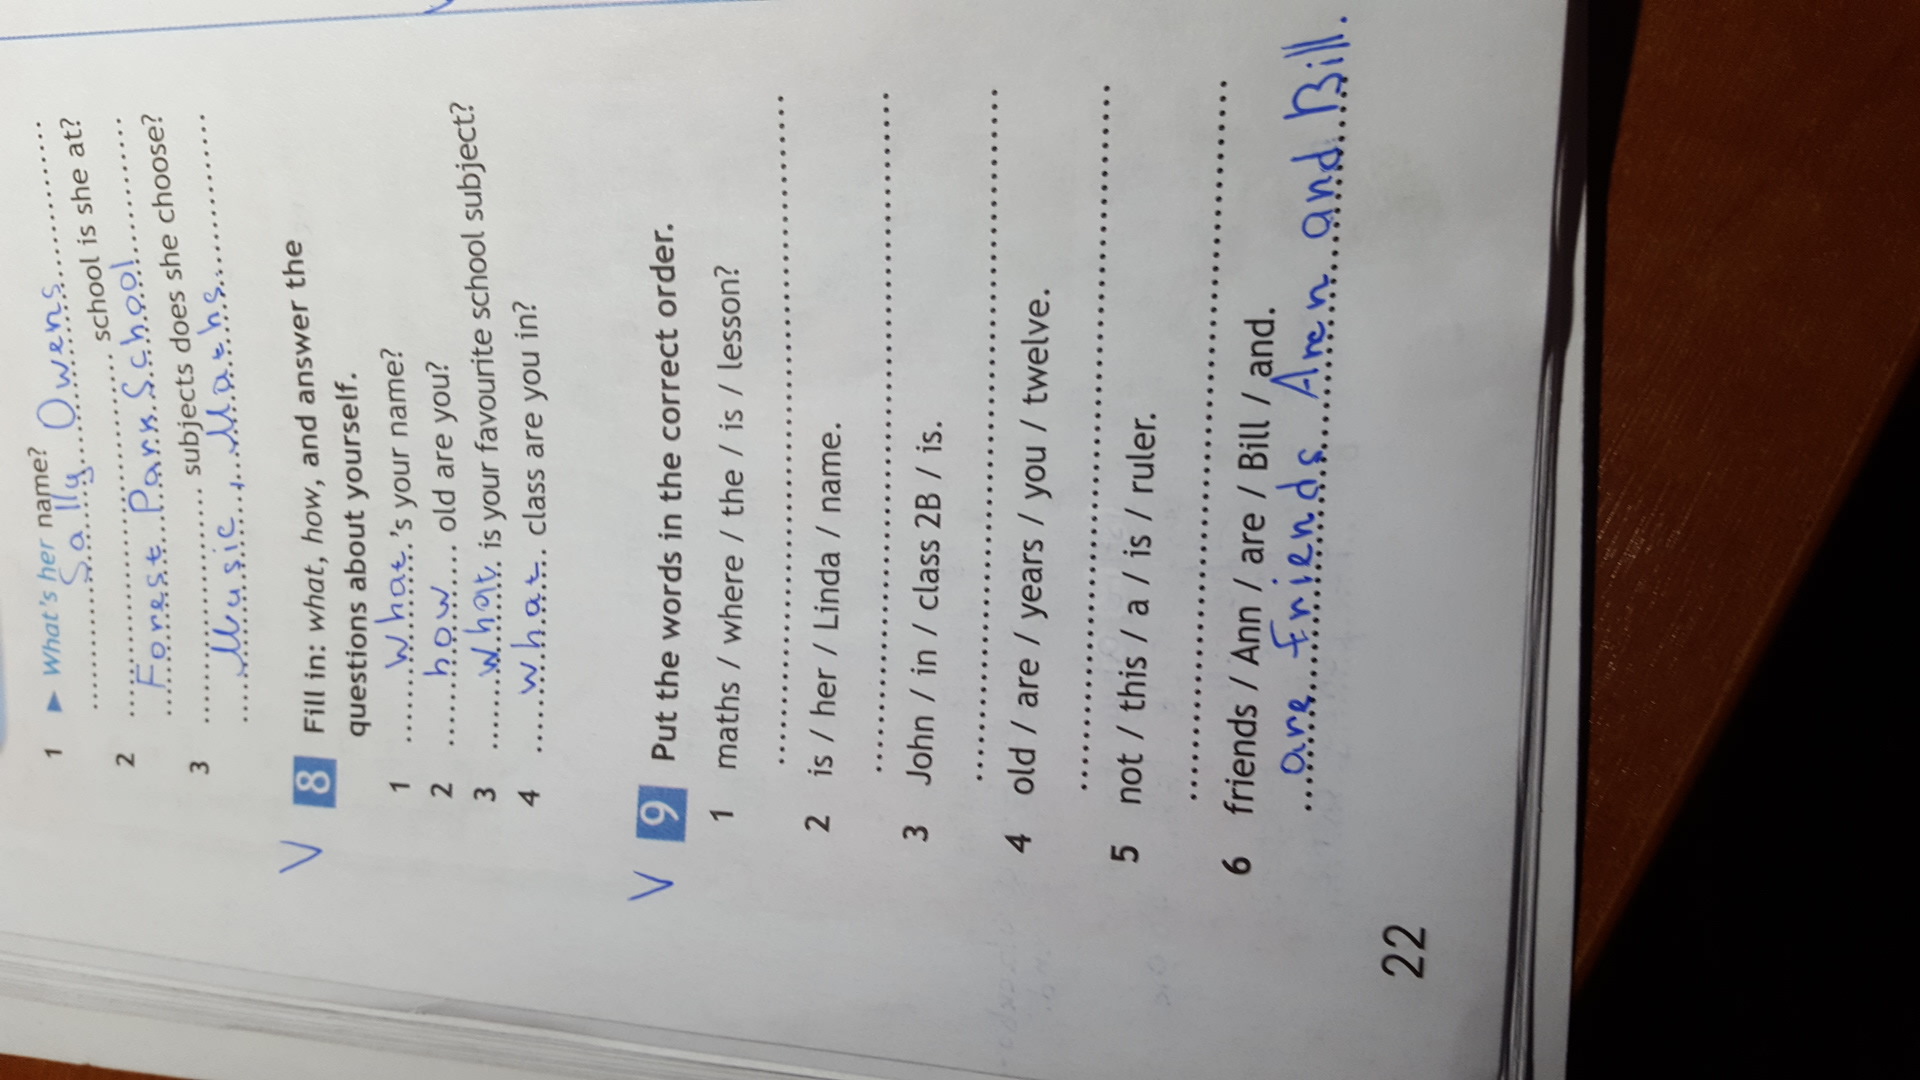 1 ▶ What's her name?
Sally Owens
2 ........ school is she at?
Forest Park School
3 ........ subjects does she choose?
Music + Maths
V 8 Fill in: what, how, and answer the
questions about yourself.
1 what 's your name?
2 how old are you?
3 what is your favourite school subject?
4 what class are you in?
V 9 Put the words in the correct order.
1 maths / where / the / is / lesson?
2 is / her / Linda / name.
3 John / in / class 2B / is.
4 old / are / years / you / twelve.
5 not / this / a / is / ruler.
6 friends / Ann / are / Bill / and.
are friends Ann and Bill.
22